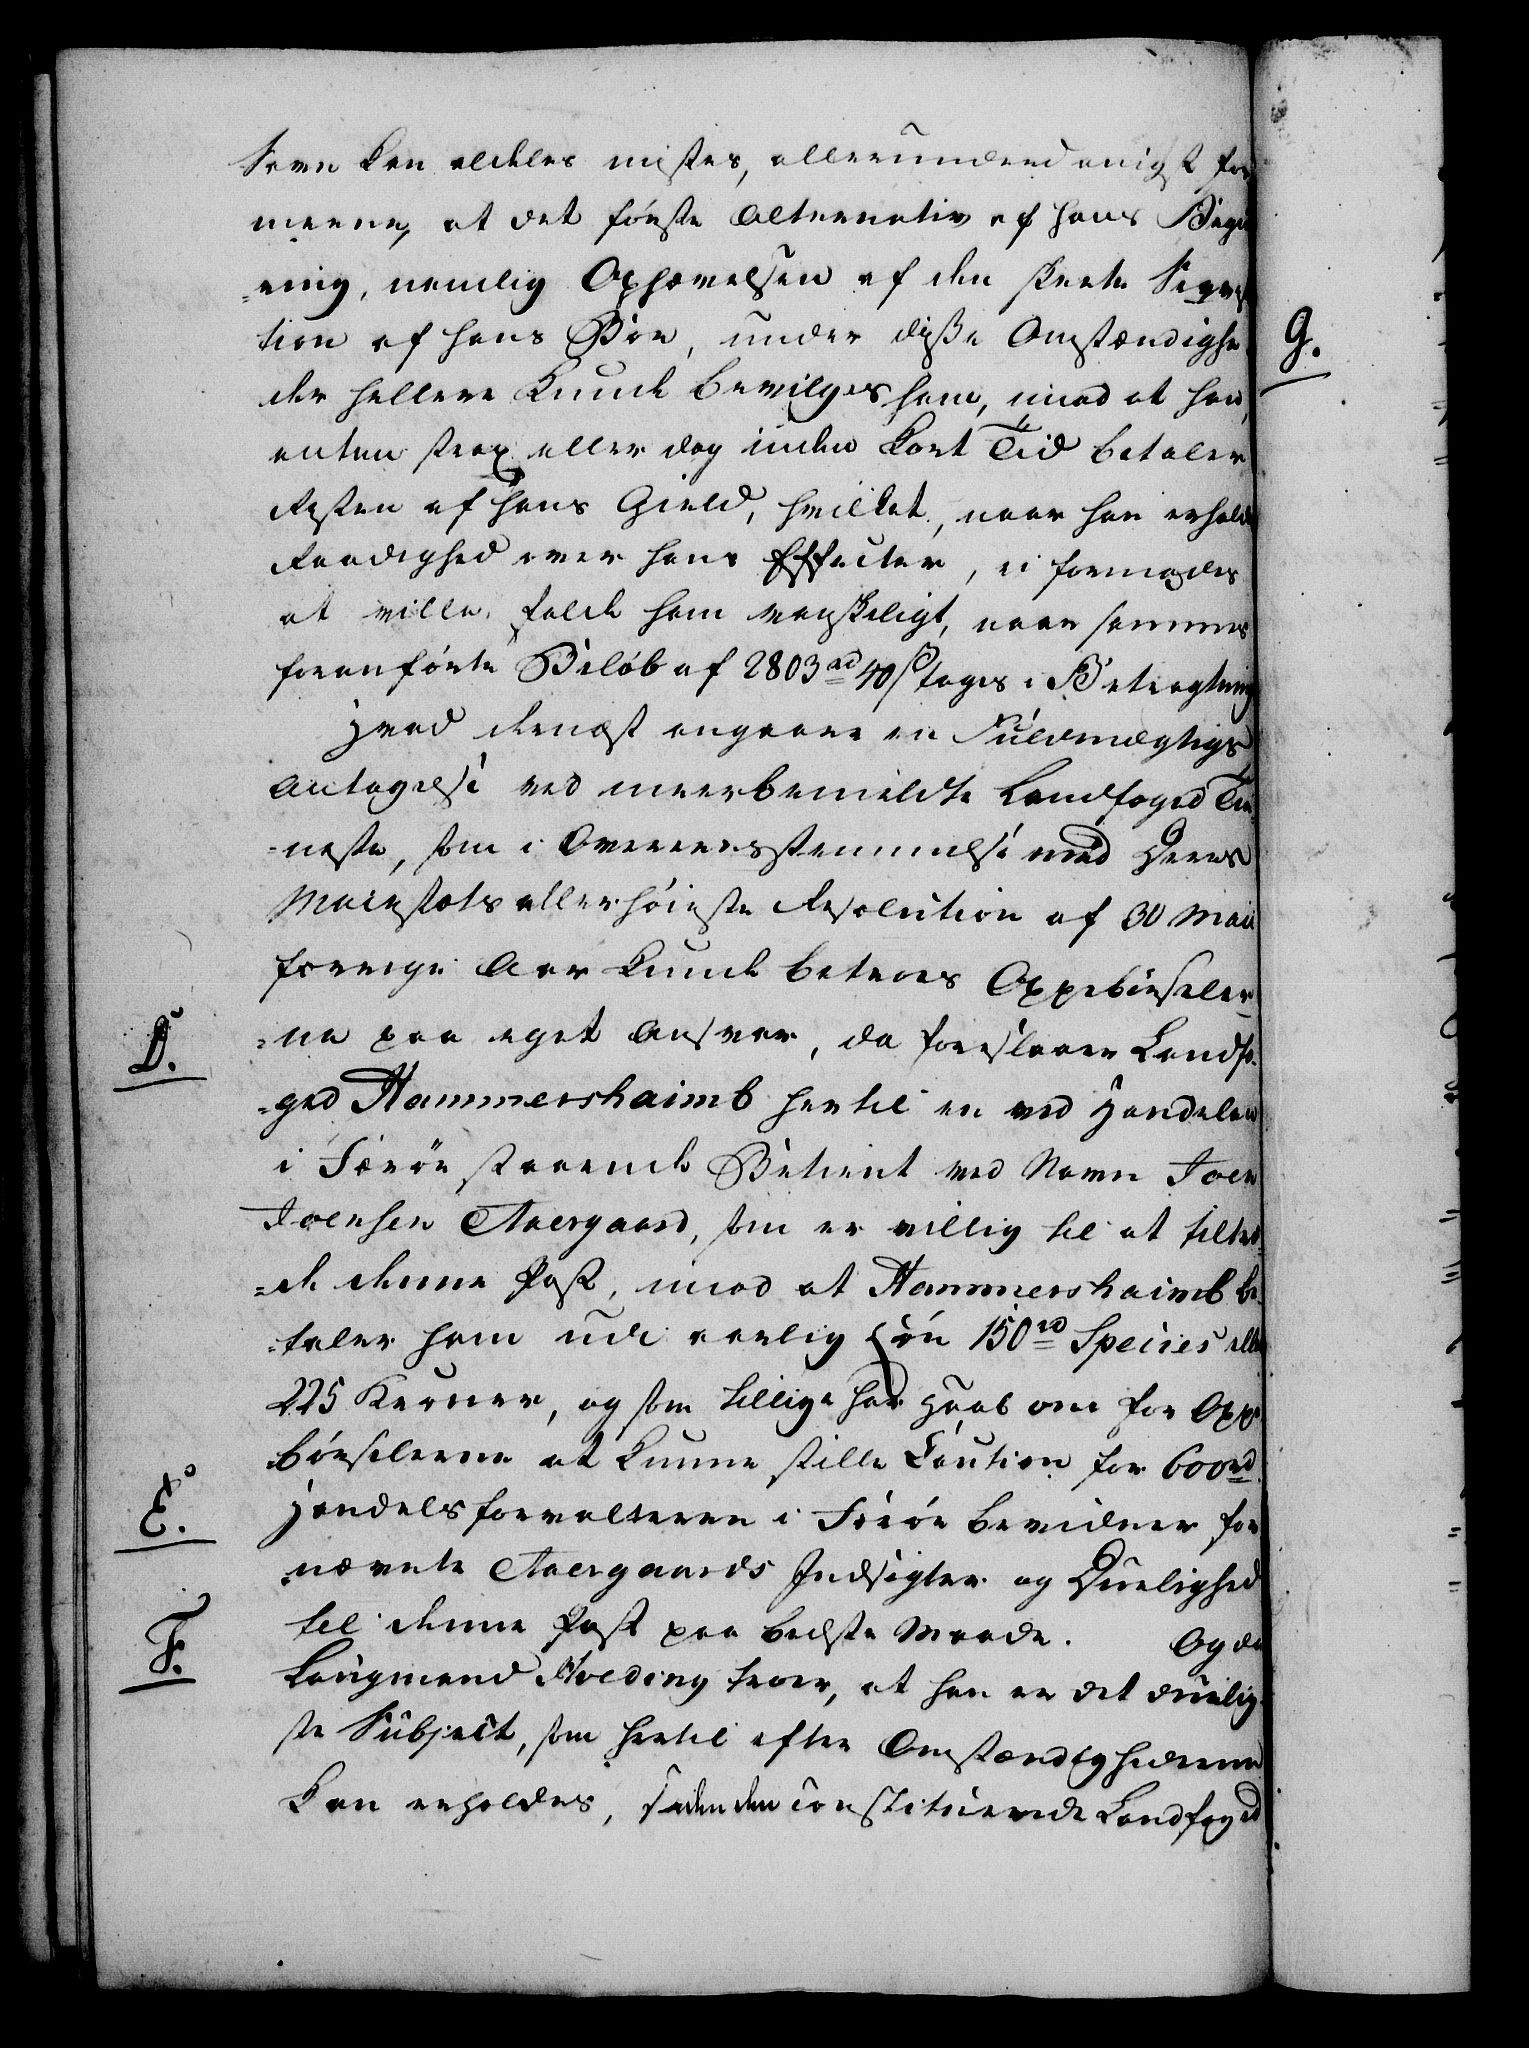 Søen kan aldeles mistes, allerunderdanigst for
meene, at det første Alternativ af hans Begie
-ring, nemlig Ophævelsen af den skeete Seqvestra
tion af hans Boe, under disse Omstændighe
der hellere kunde bevilges ham, mod at han,
enten strax eller dog inden kort Tid betaler
Resten af hans Gield, hvilket, naar han erholder
Raadighed over hans Effecter, ei formodes
at ville falde ham vanskeligt, naar sammes
foranførte Beløb af 2803 rd 40 s tages i Betragtning
Hvad dernæst angaaer en Fuldmægtigs
Antagelse ved meerbemeldte Landfoged Tie
-neste, som i Overeensstemmelse med Deres
Maiestæts allerhøieste Resolution af 30 Maii
forrige Aar kunde betroes Oppebørseler
D.
-ne paa eget Ansvar, da foreslaaer Landfo
-ged Hammershaimb hertil en ved Handelen
i Færøe staaende Betient ved Navn Joen
Joensen Aaergaard, som er villig til at tiltræ
-de denne Post, imod at Hammershaimb be
-taler ham udi aarlig Løn 150 rd Species eller
225 Kroner, og som tillige har Haab om for Oppe
børselerne at kunne stille Caution for 600 rd
E.
Handelsforvalteren i Færøe bevidner for
nævnte Aaergaards Indsigter og Duelighed
til denne Post paa bedste Maade. Og da
F.
Laugmand Weding troer, at han er det duelig
ste Subject, som hertil efter Omstændighederne
kan erholdes, saa den constituerede Landfoged
G.